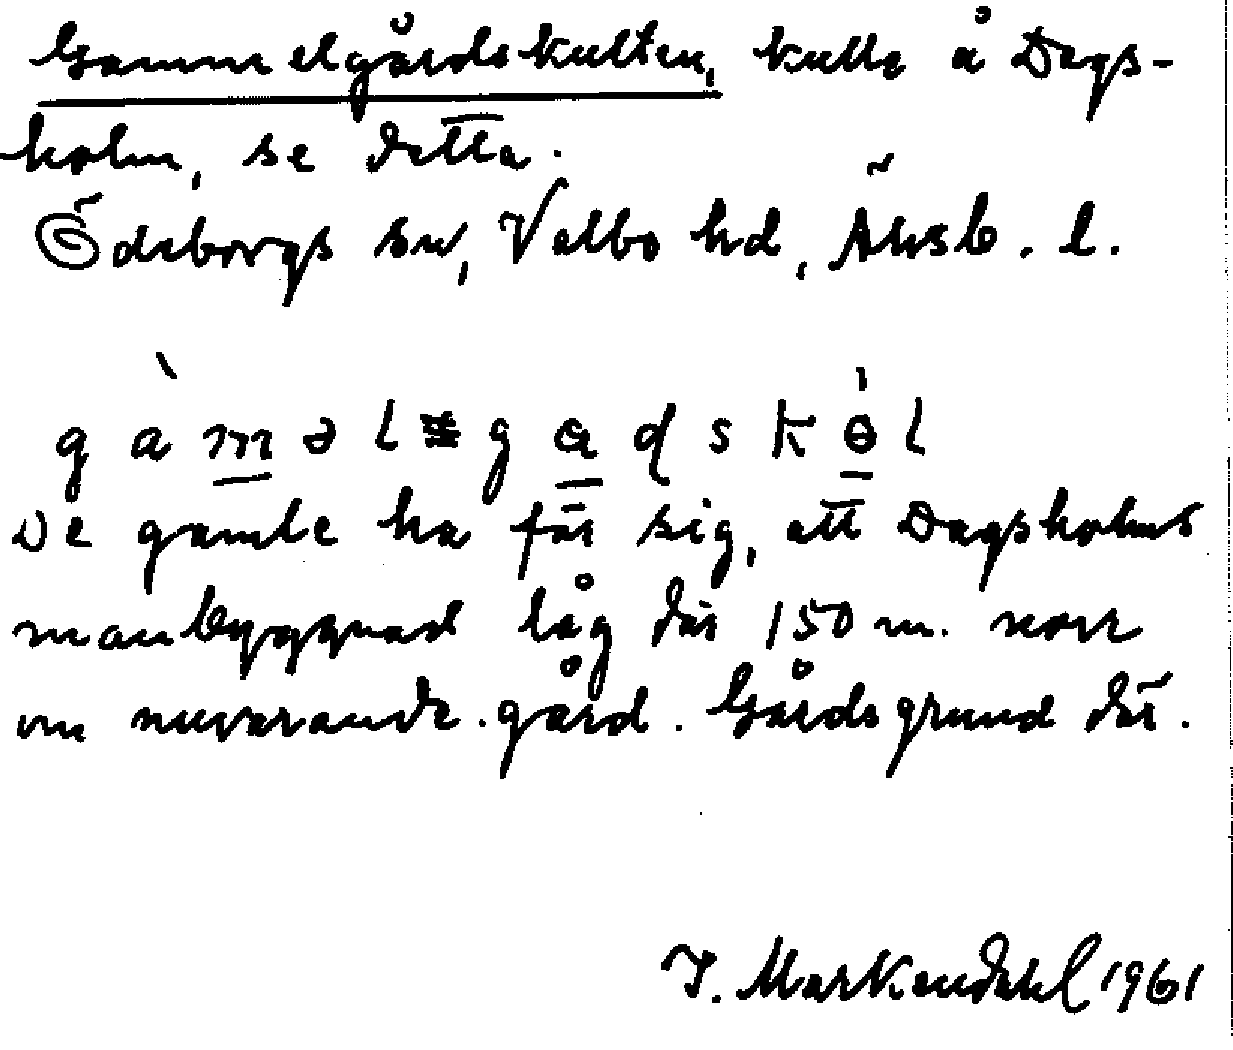 Gammelgårdskullen, kulle å Dags-
holm, se detta.
Ödeborgs sn, Valbo hd, Älvsb. l.
gàməl≠gɑɖskɵ̀l
De gamle ha för sig, att Dagsholms
manbyggnad låg där 150 m. norr
om nuvarande gård. Gårdsgrund där.
J. Markendahl 1961